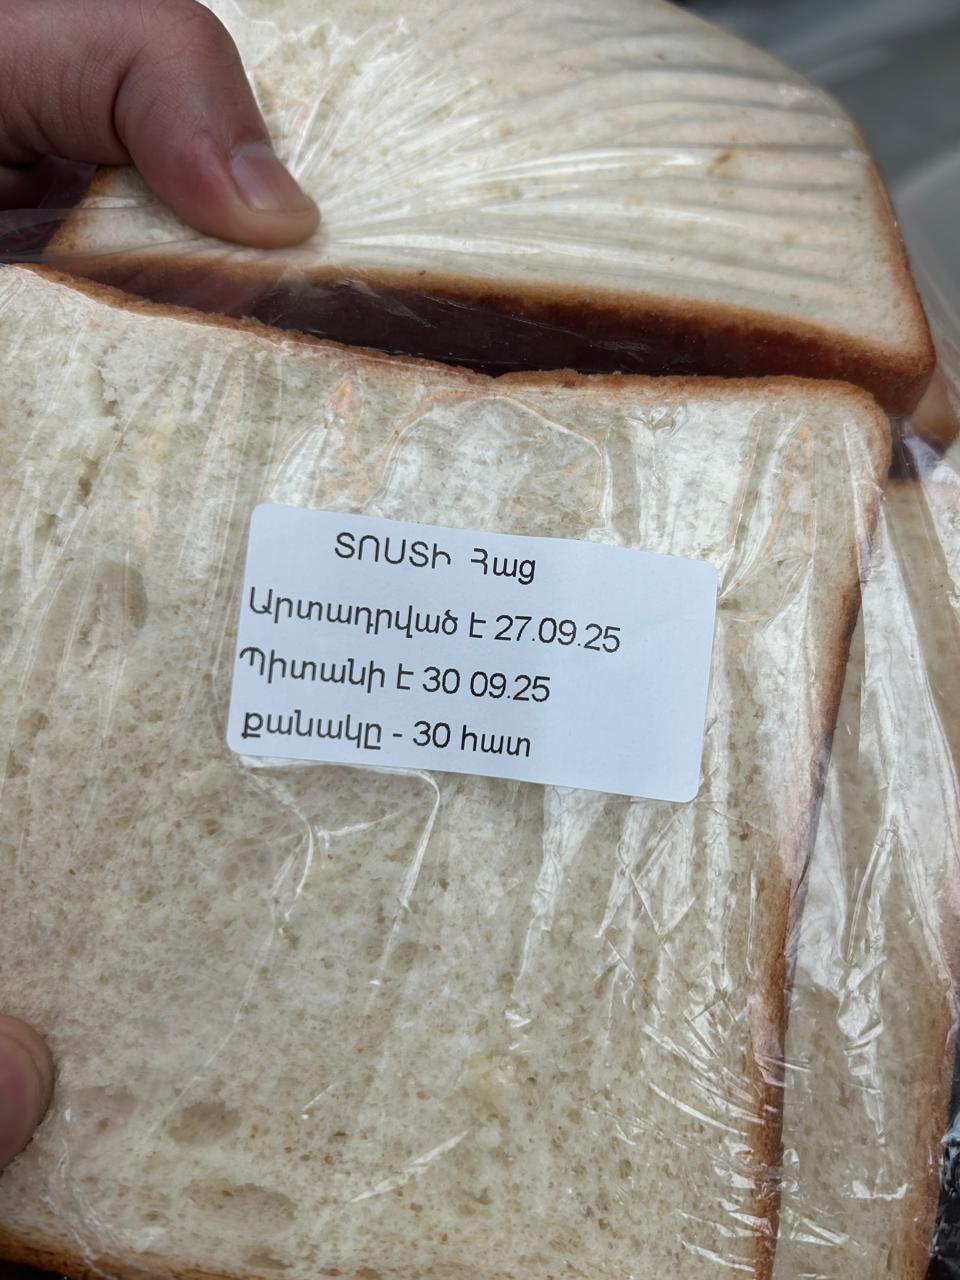 ՏՈՍՏԻ Հաց
Արտադրված է 27.09.25
Պիտանի է 30 09.25
քանակը - 30 հատ